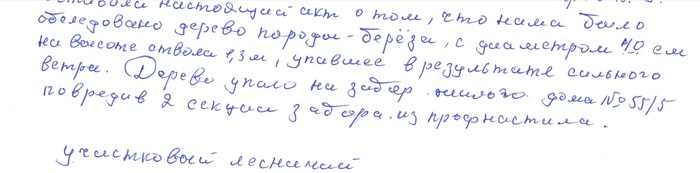 настоящий акт о том, что нами было
обследовано дерево породы - берёза, с диаметром 40 см
на высоте ствола 1,3м, упавшее в результате сильного
ветра. Дерево упало на забор жилого дома № 55/5
повредив 2 секции забора из профнастила.
участковый лесничий